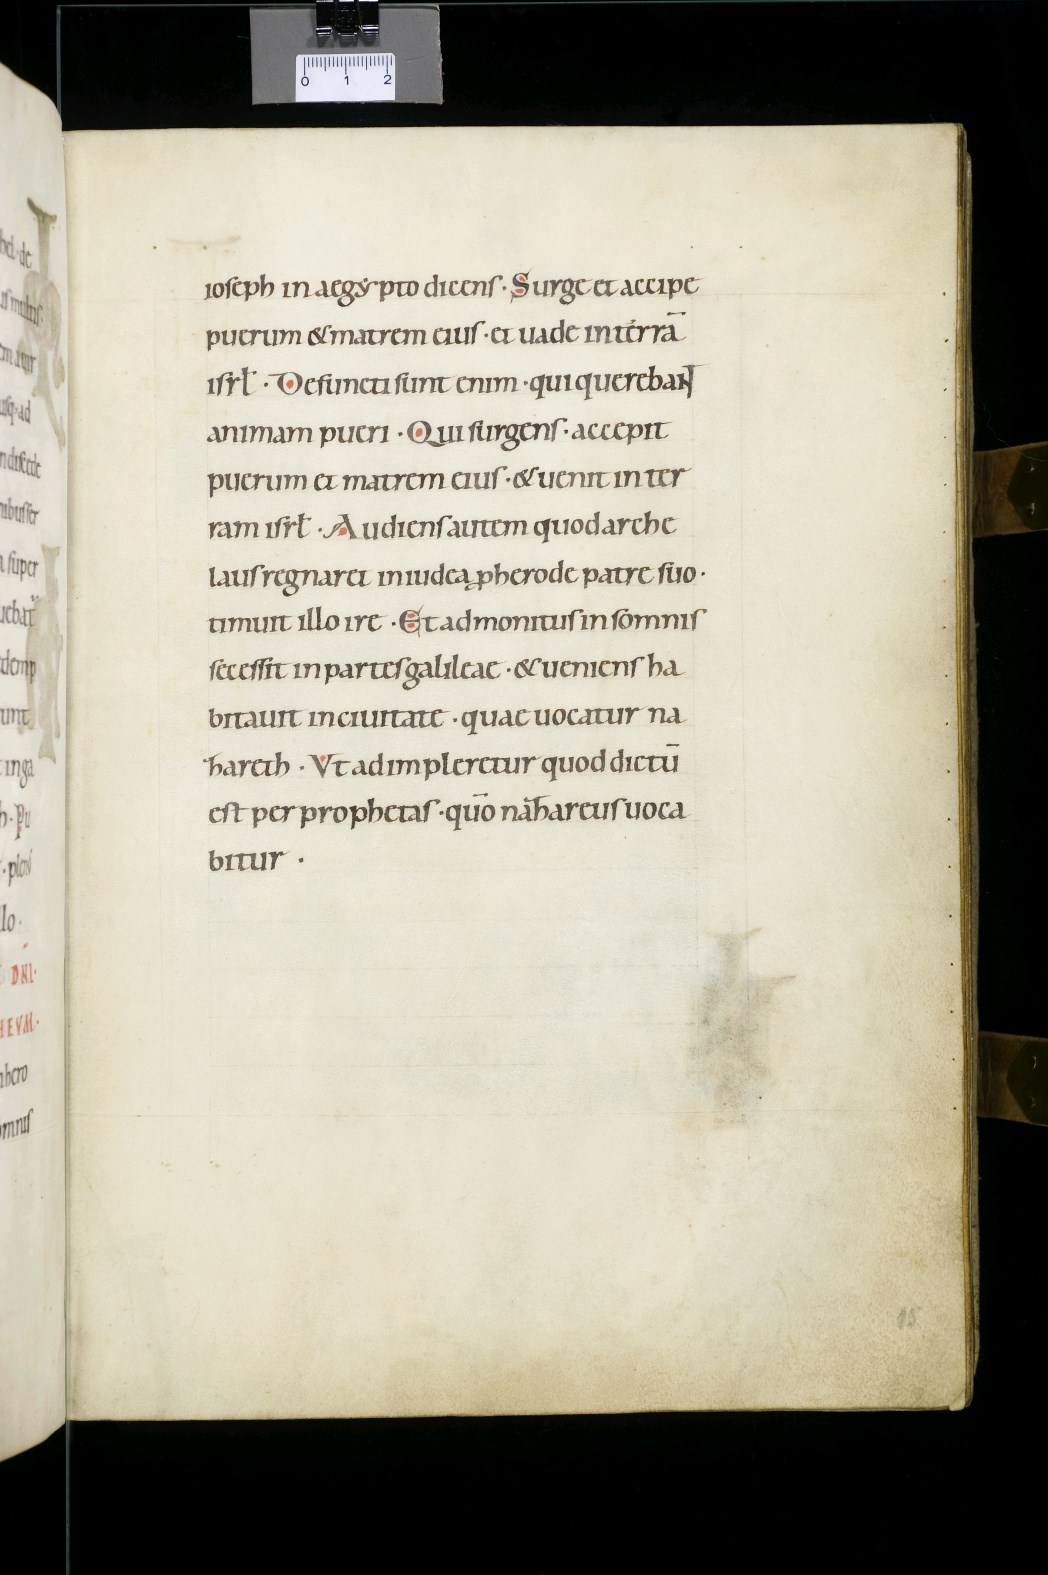 ioseph in aegẏpto dicens · Surge et accipe
puerum & matrem eius · et uade in terrā
isrł · Defuncti sunt enim · qui querebaɴt
animam pueri · Qui surgens · accepit
puerum et matrem eius · & uenit in ter
ram isrł · Audiens autem quod arche
laus regnaret in iudea p herode patre suo ·
timuit illo ire · Et admonitus in somnis
secessit in partes galileae · & ueniens ha
bitauit in ciuitate · quae uocatur na
hareth · Vt adimpleretur quod dictū
est per prophetas · quō nahareus uoca
bitur ·
0 1 2
15
hel · de
usq· ad
super
unt
in ga
h · Pu
llo ·
DNI ·
HEVM ·
hero
omnis